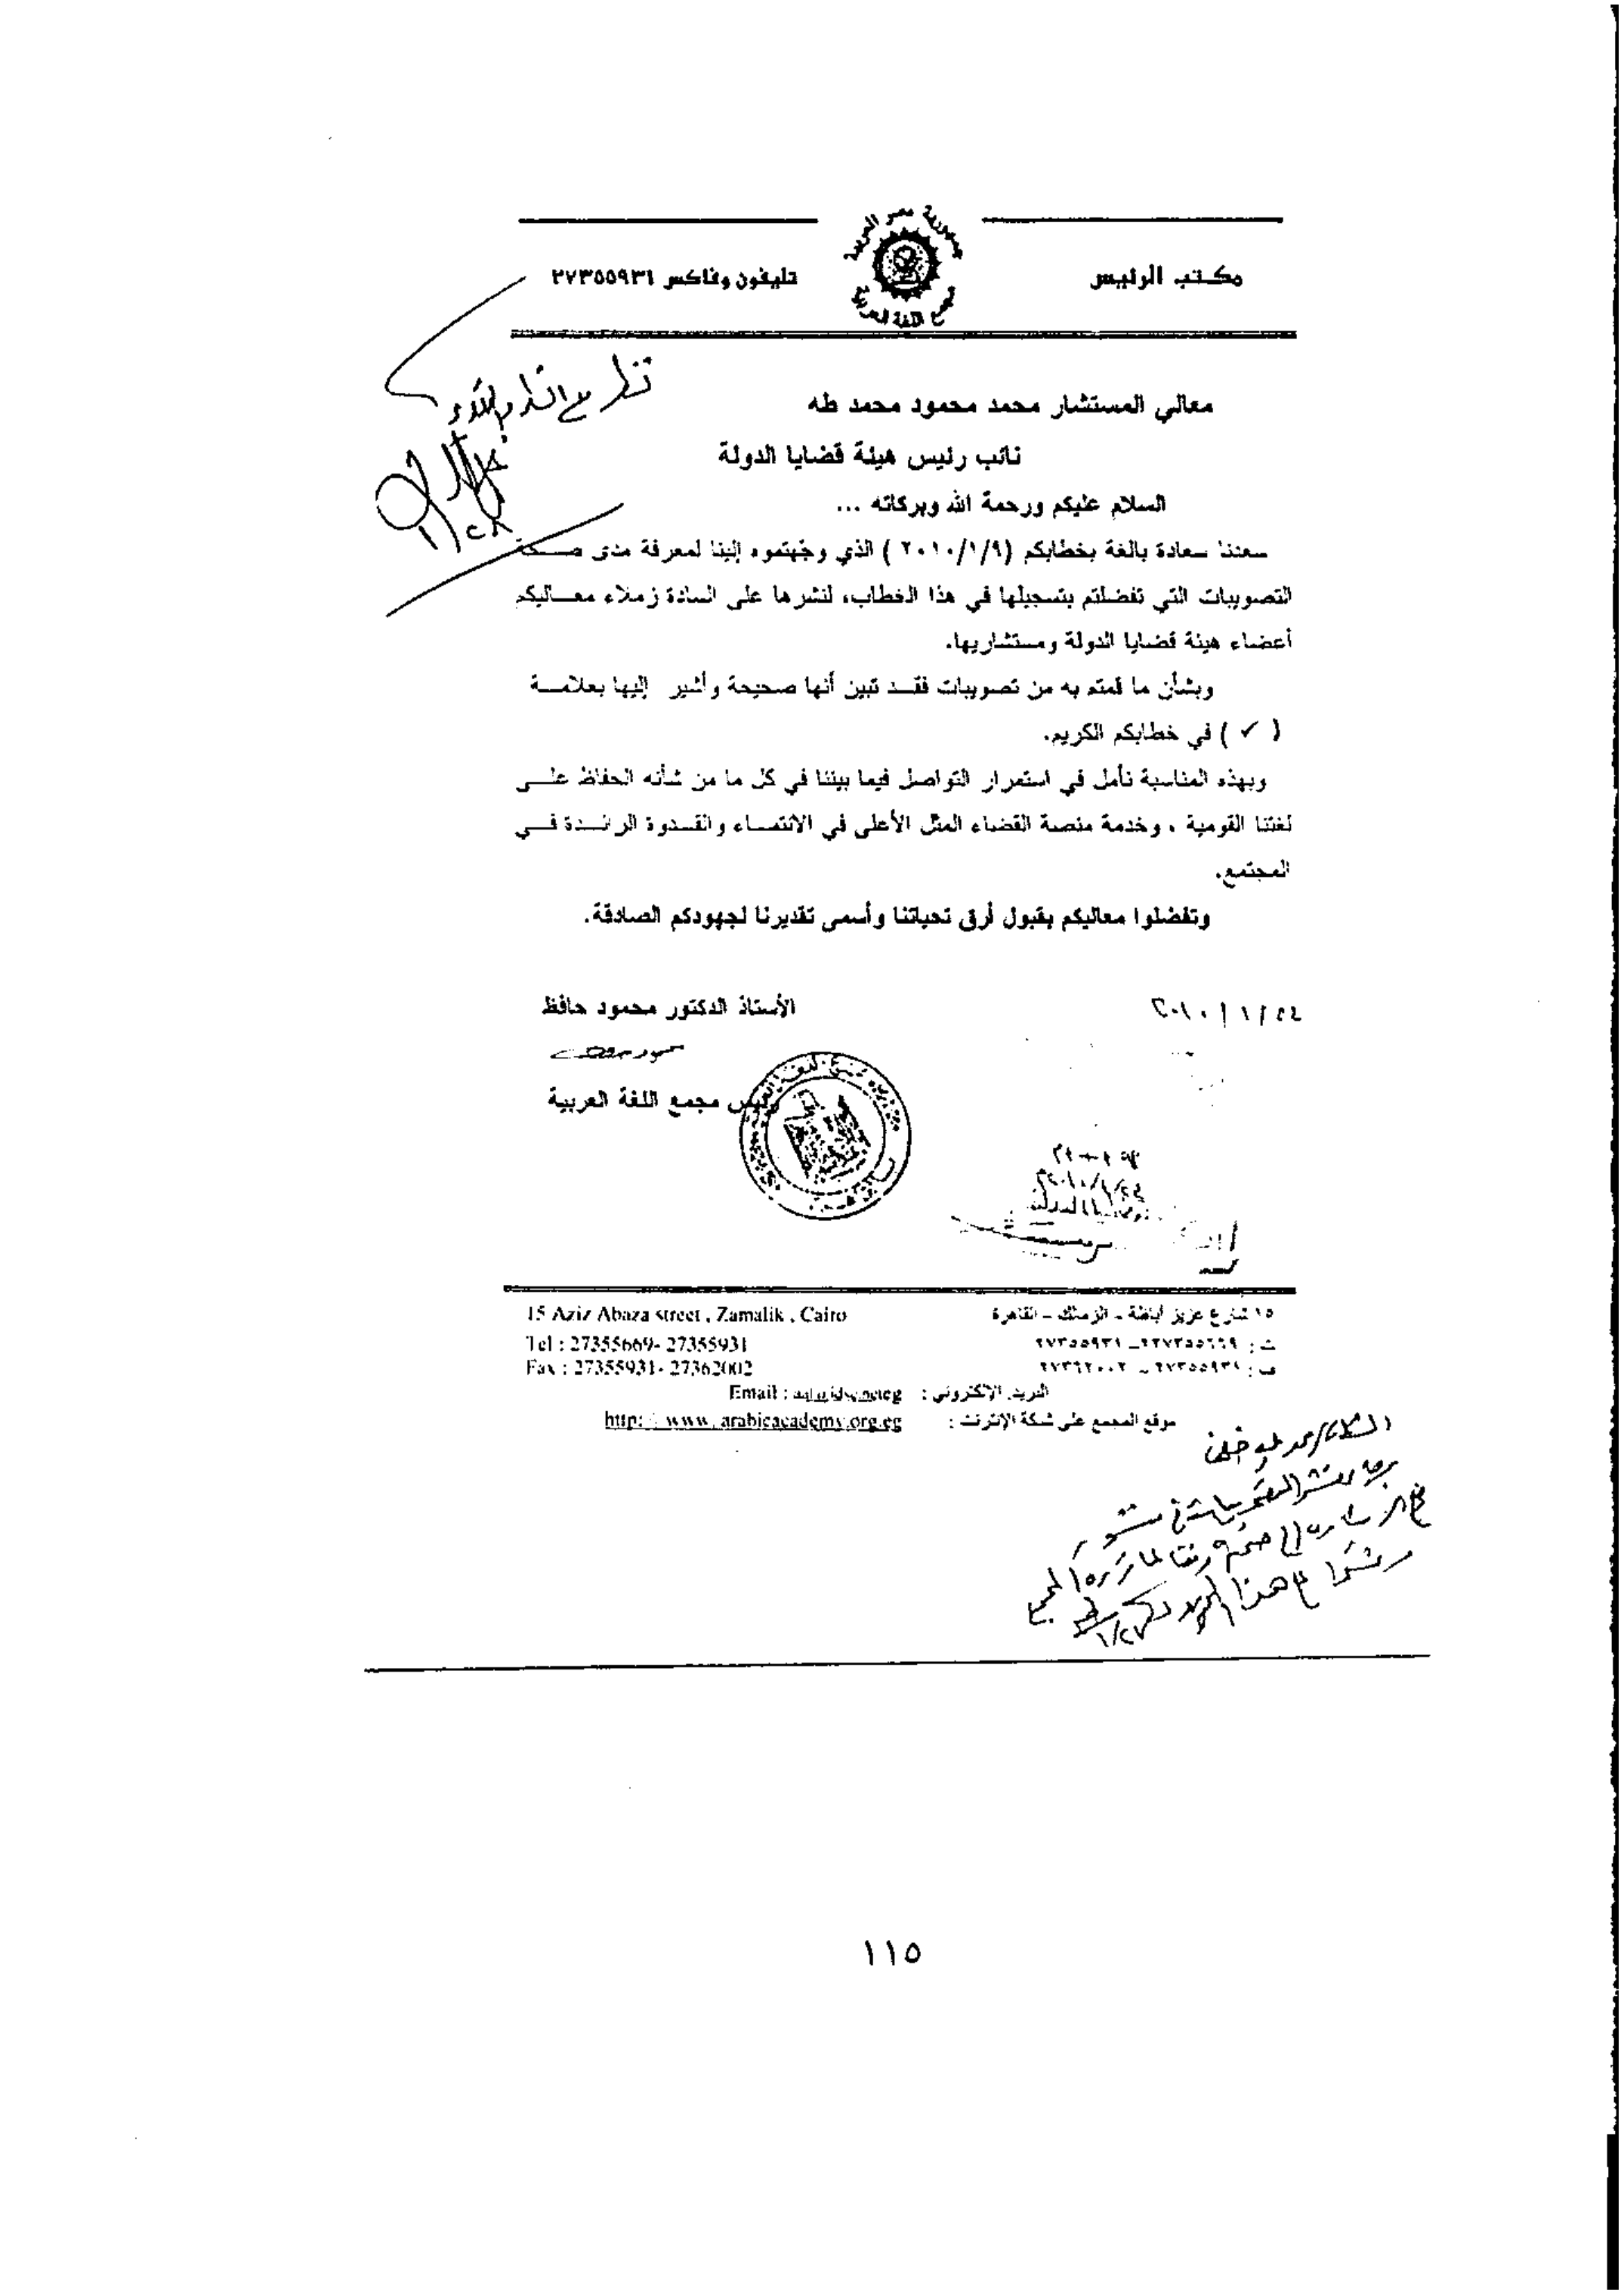 جمهورية مصر العربية
مكتب الرئيس
تليفون وفاكس ٢٧٣٥٥٩٣١
مجمع اللغة العربية
معالي المستشار محمد محمود محمد طه
نائب رئيس هيئة قضايا الدولة
السلام عليكم ورحمة الله وبركاته ...
سعدنا سعادة بالغة بخطابكم (٢٠١٠/١/٩ ) الذي وجهتموه إلينا لمعرفة مدى صـــحة
التصويبات التي تفضلتم بتسجيلها في هذا الخطاب، لنشرها على السادة زملاء معـــاليكم
أعضاء هيئة قضايا الدولة ومستشاريها.
وبشأن ما قمتم به من تصويبات فقـد تبين أنها صحيحة وأشير إليها بعلامـــة
( ✓ ) في خطابكم الكريم.
وبهذه المناسبة نأمل في استمرار التواصل فيما بيننا في كل ما من شأنه الحفاظ علـــى
لغتنا القومية ، وخدمة منصة القضاء المثل الأعلى في الانتمـاء والقـدوة الرائـدة فـــي
المجتمع.
وتفضلوا معاليكم بقبول أرق تحياتنا وأسمى تقديرنا لجهودكم الصادقة.
٢٠١٠/١/٢٤
الأستاذ الدكتور محمود حافظ
رئيس مجمع اللغة العربية
١٥ شارع عزيز أباظة ـ الزمالك ـ القاهرة
15 Aziz Abaza street , Zamalik , Cairo
ت : ٢٧٣٥٥٦٦٩ـ ٢٧٣٥٥٩٣١
Tel : 27355669- 27355931
ف : ٢٧٣٥٥٩٣١ ـ ٢٧٣٦٢٠٠٢
Fax : 27355931- 27362002
البريد الإلكتروني : Email :
موقع المجمع على شبكة الإنترنت : http: www. arabicacademy.org.eg
١١٥